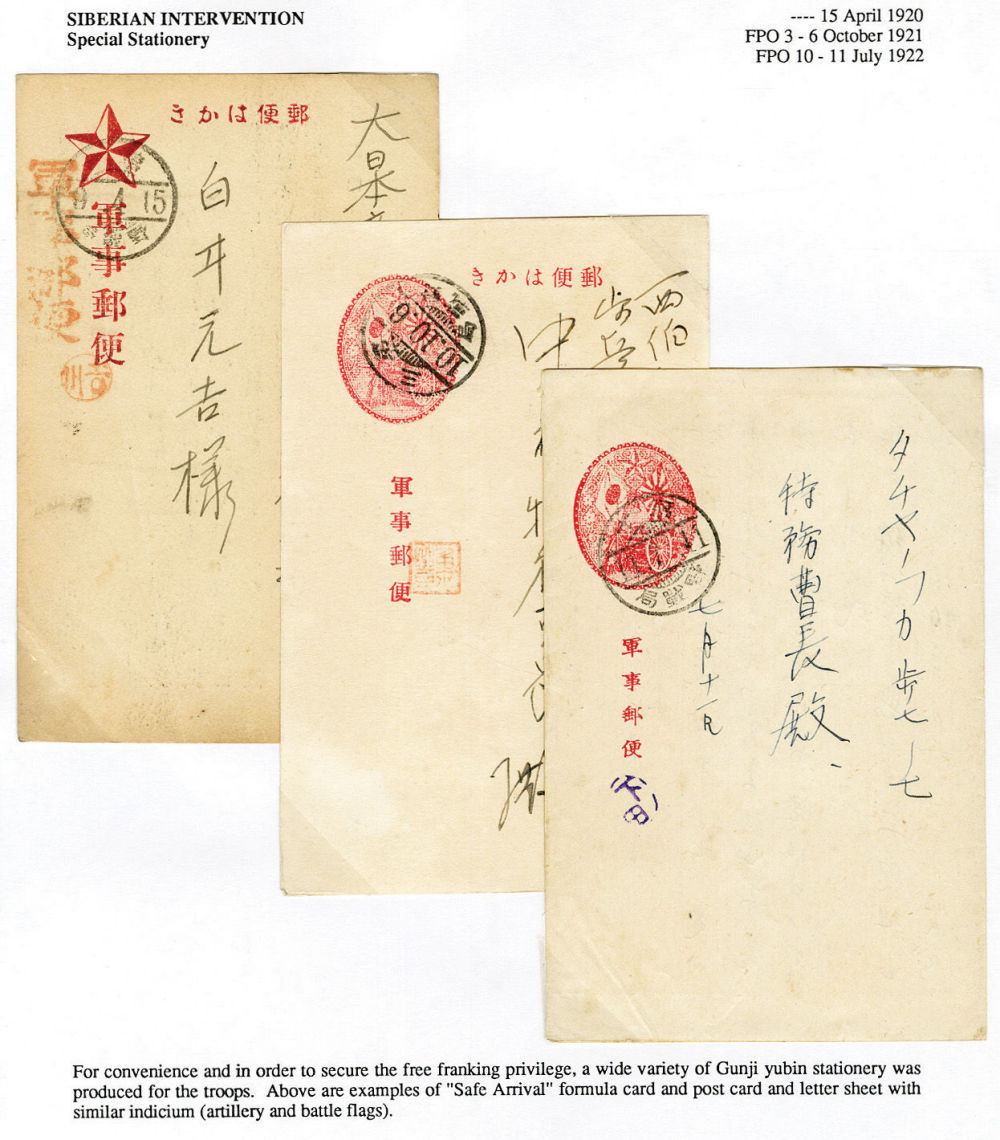 SIBERIAN INTERVENTION
Special Stationery
---- 15 April 1920
FPO 3 - 6 October 1921
FPO 10 - 11 July 1922
きかは便郵
軍事郵便
軍事郵便
9.4.15
大日本
白井元吉様
きかは便郵
10.10.6
三
軍事郵便
西伯
歩兵
中
タチヤーフカ歩七ノ七
特務曹長殿
七月十一日
軍事郵便
For convenience and in order to secure the free franking privilege, a wide variety of Gunji yubin stationery was
produced for the troops. Above are examples of "Safe Arrival" formula card and post card and letter sheet with
similar indicium (artillery and battle flags).